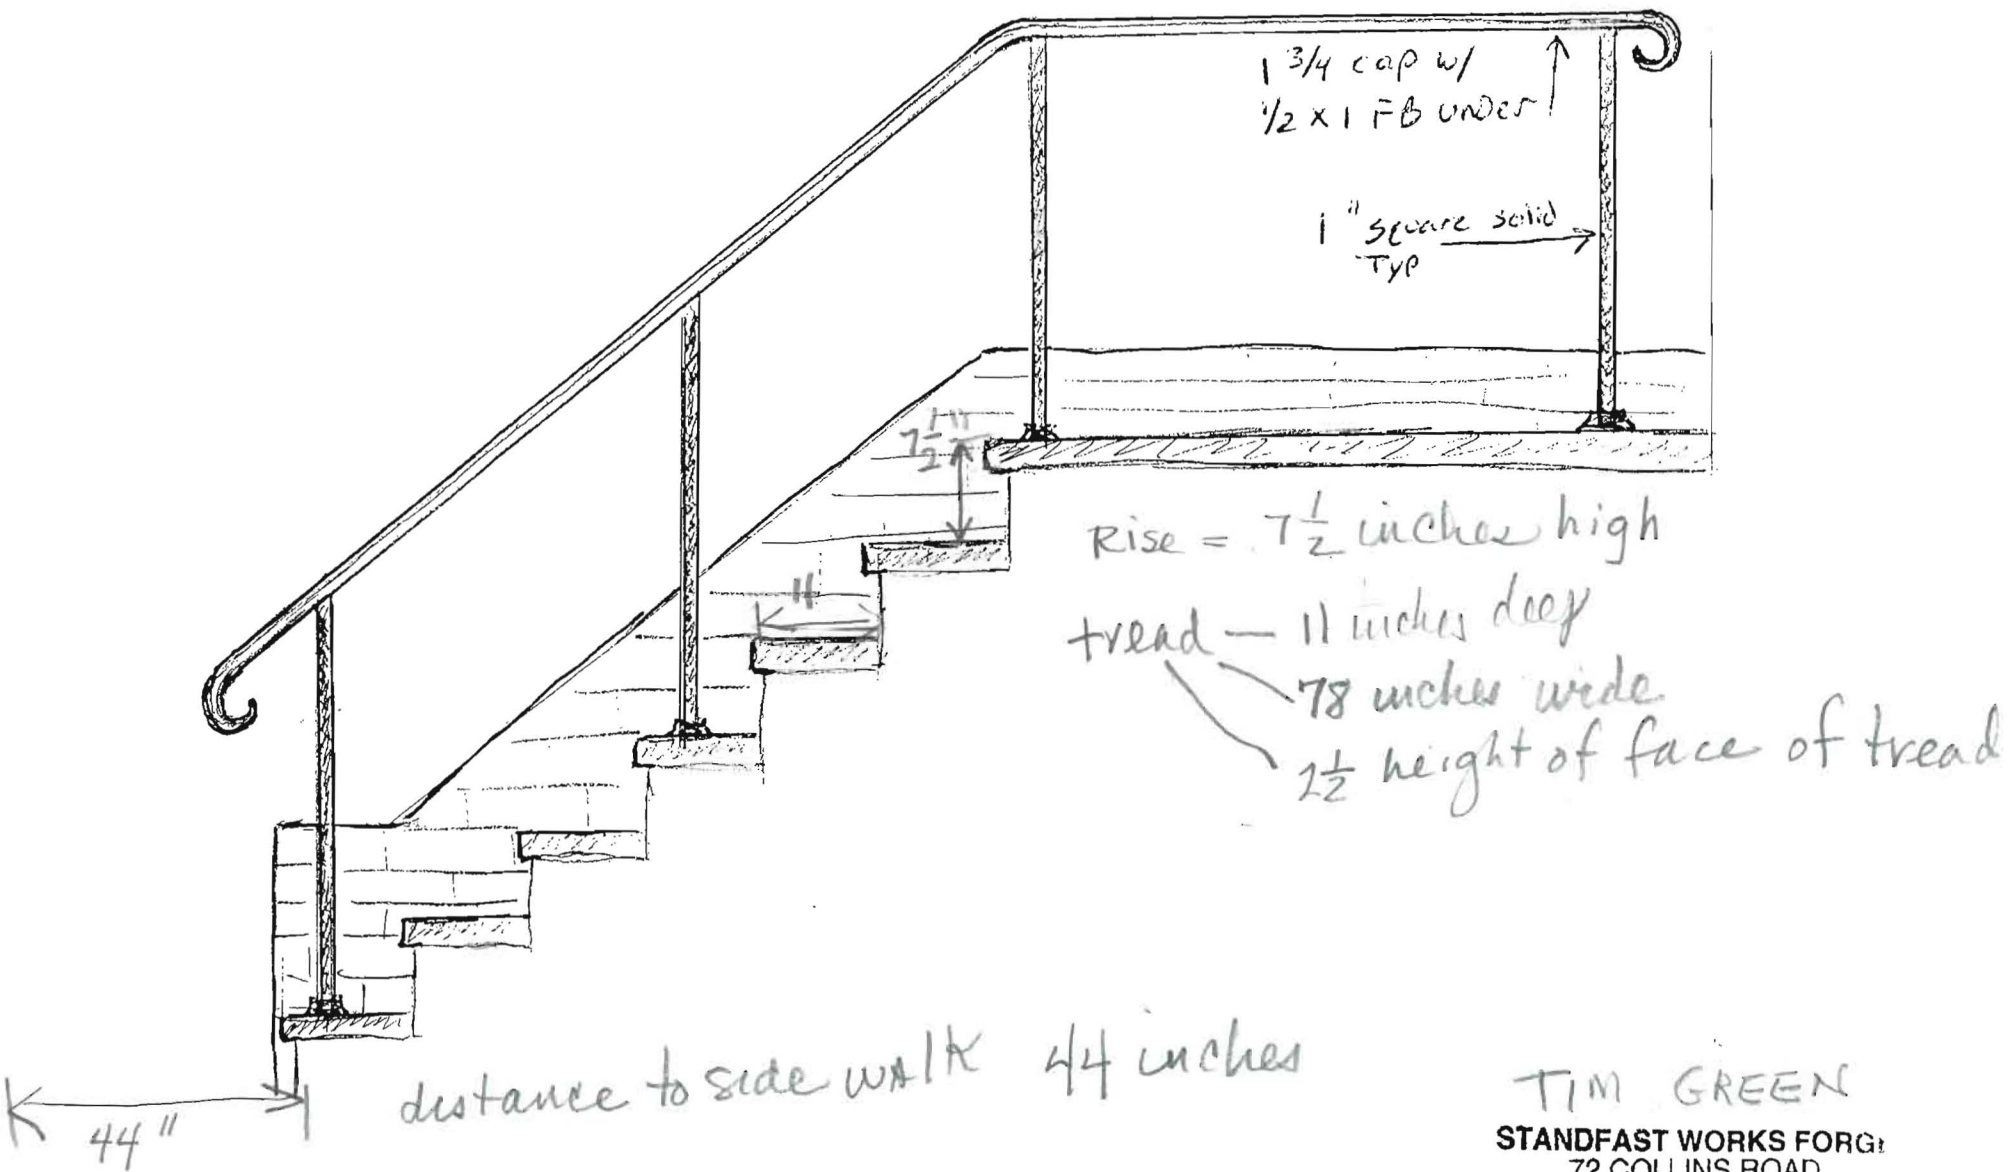 1 3/4 cap w/
1/2 x 1 FB under
1" square solid
Typ
7 1/2"
11
Rise = 7 1/2 inches high
tread — 11 inches deep
78 inches wide
2 1/2 height of face of tread
distance to side walk 44 inches
44"
TIM GREEN
STANDFAST WORKS FORGE
72 COLLINS ROAD